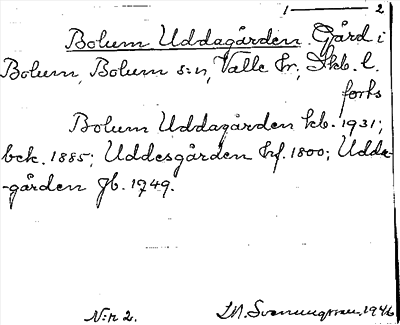 1 — 2
Bolum Uddagården. Gård i
Bolum, Bolum s:n, Valle hr, Skb. l.
forts
Bolum Uddagården kb. 1931;
bck. 1885; Uddesgården hf. 1800; Udda-
-gården jb. 1749.
N:r 2. Svenungsson, 1946